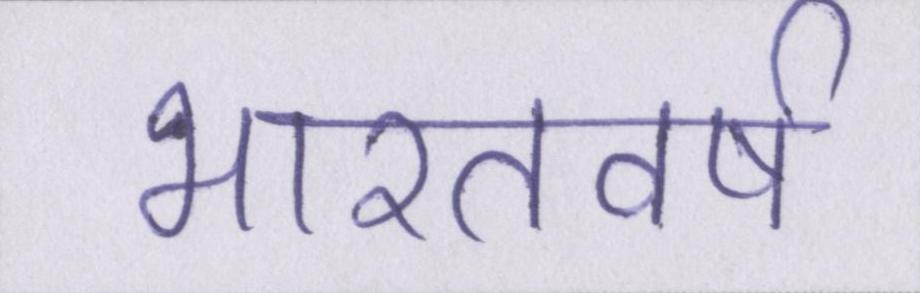 भारतवर्ष